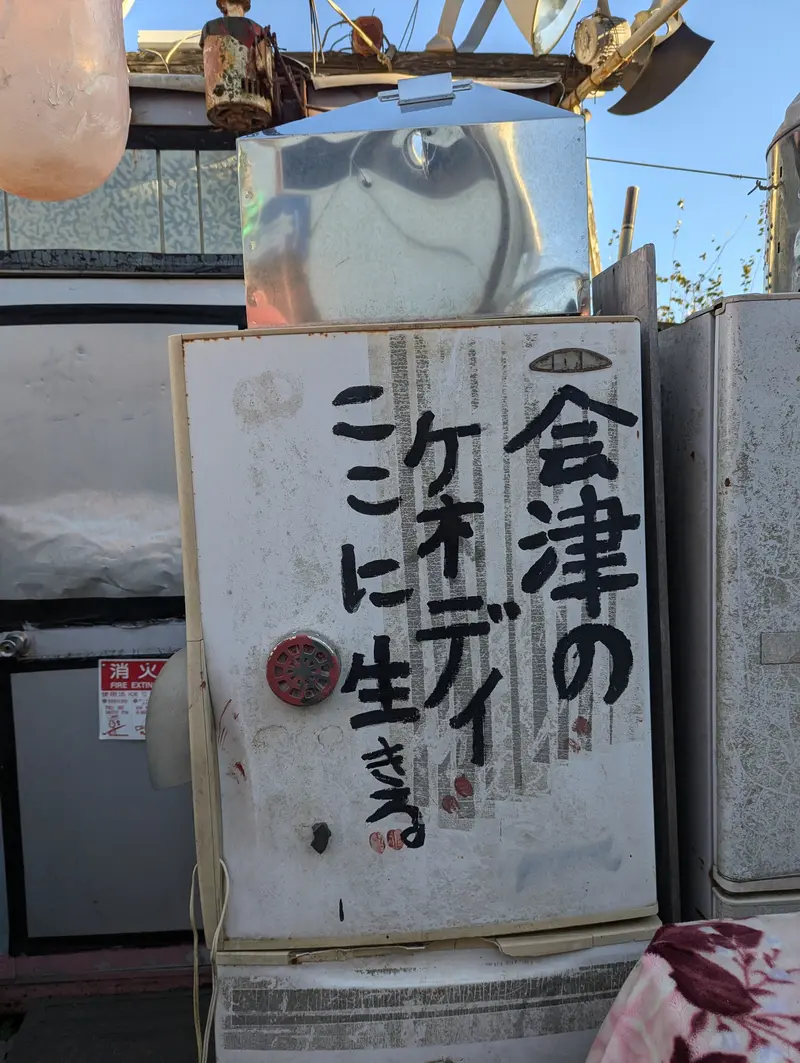 会津の
ケネディ
ここに生きる
消火
FIRE EXTIN